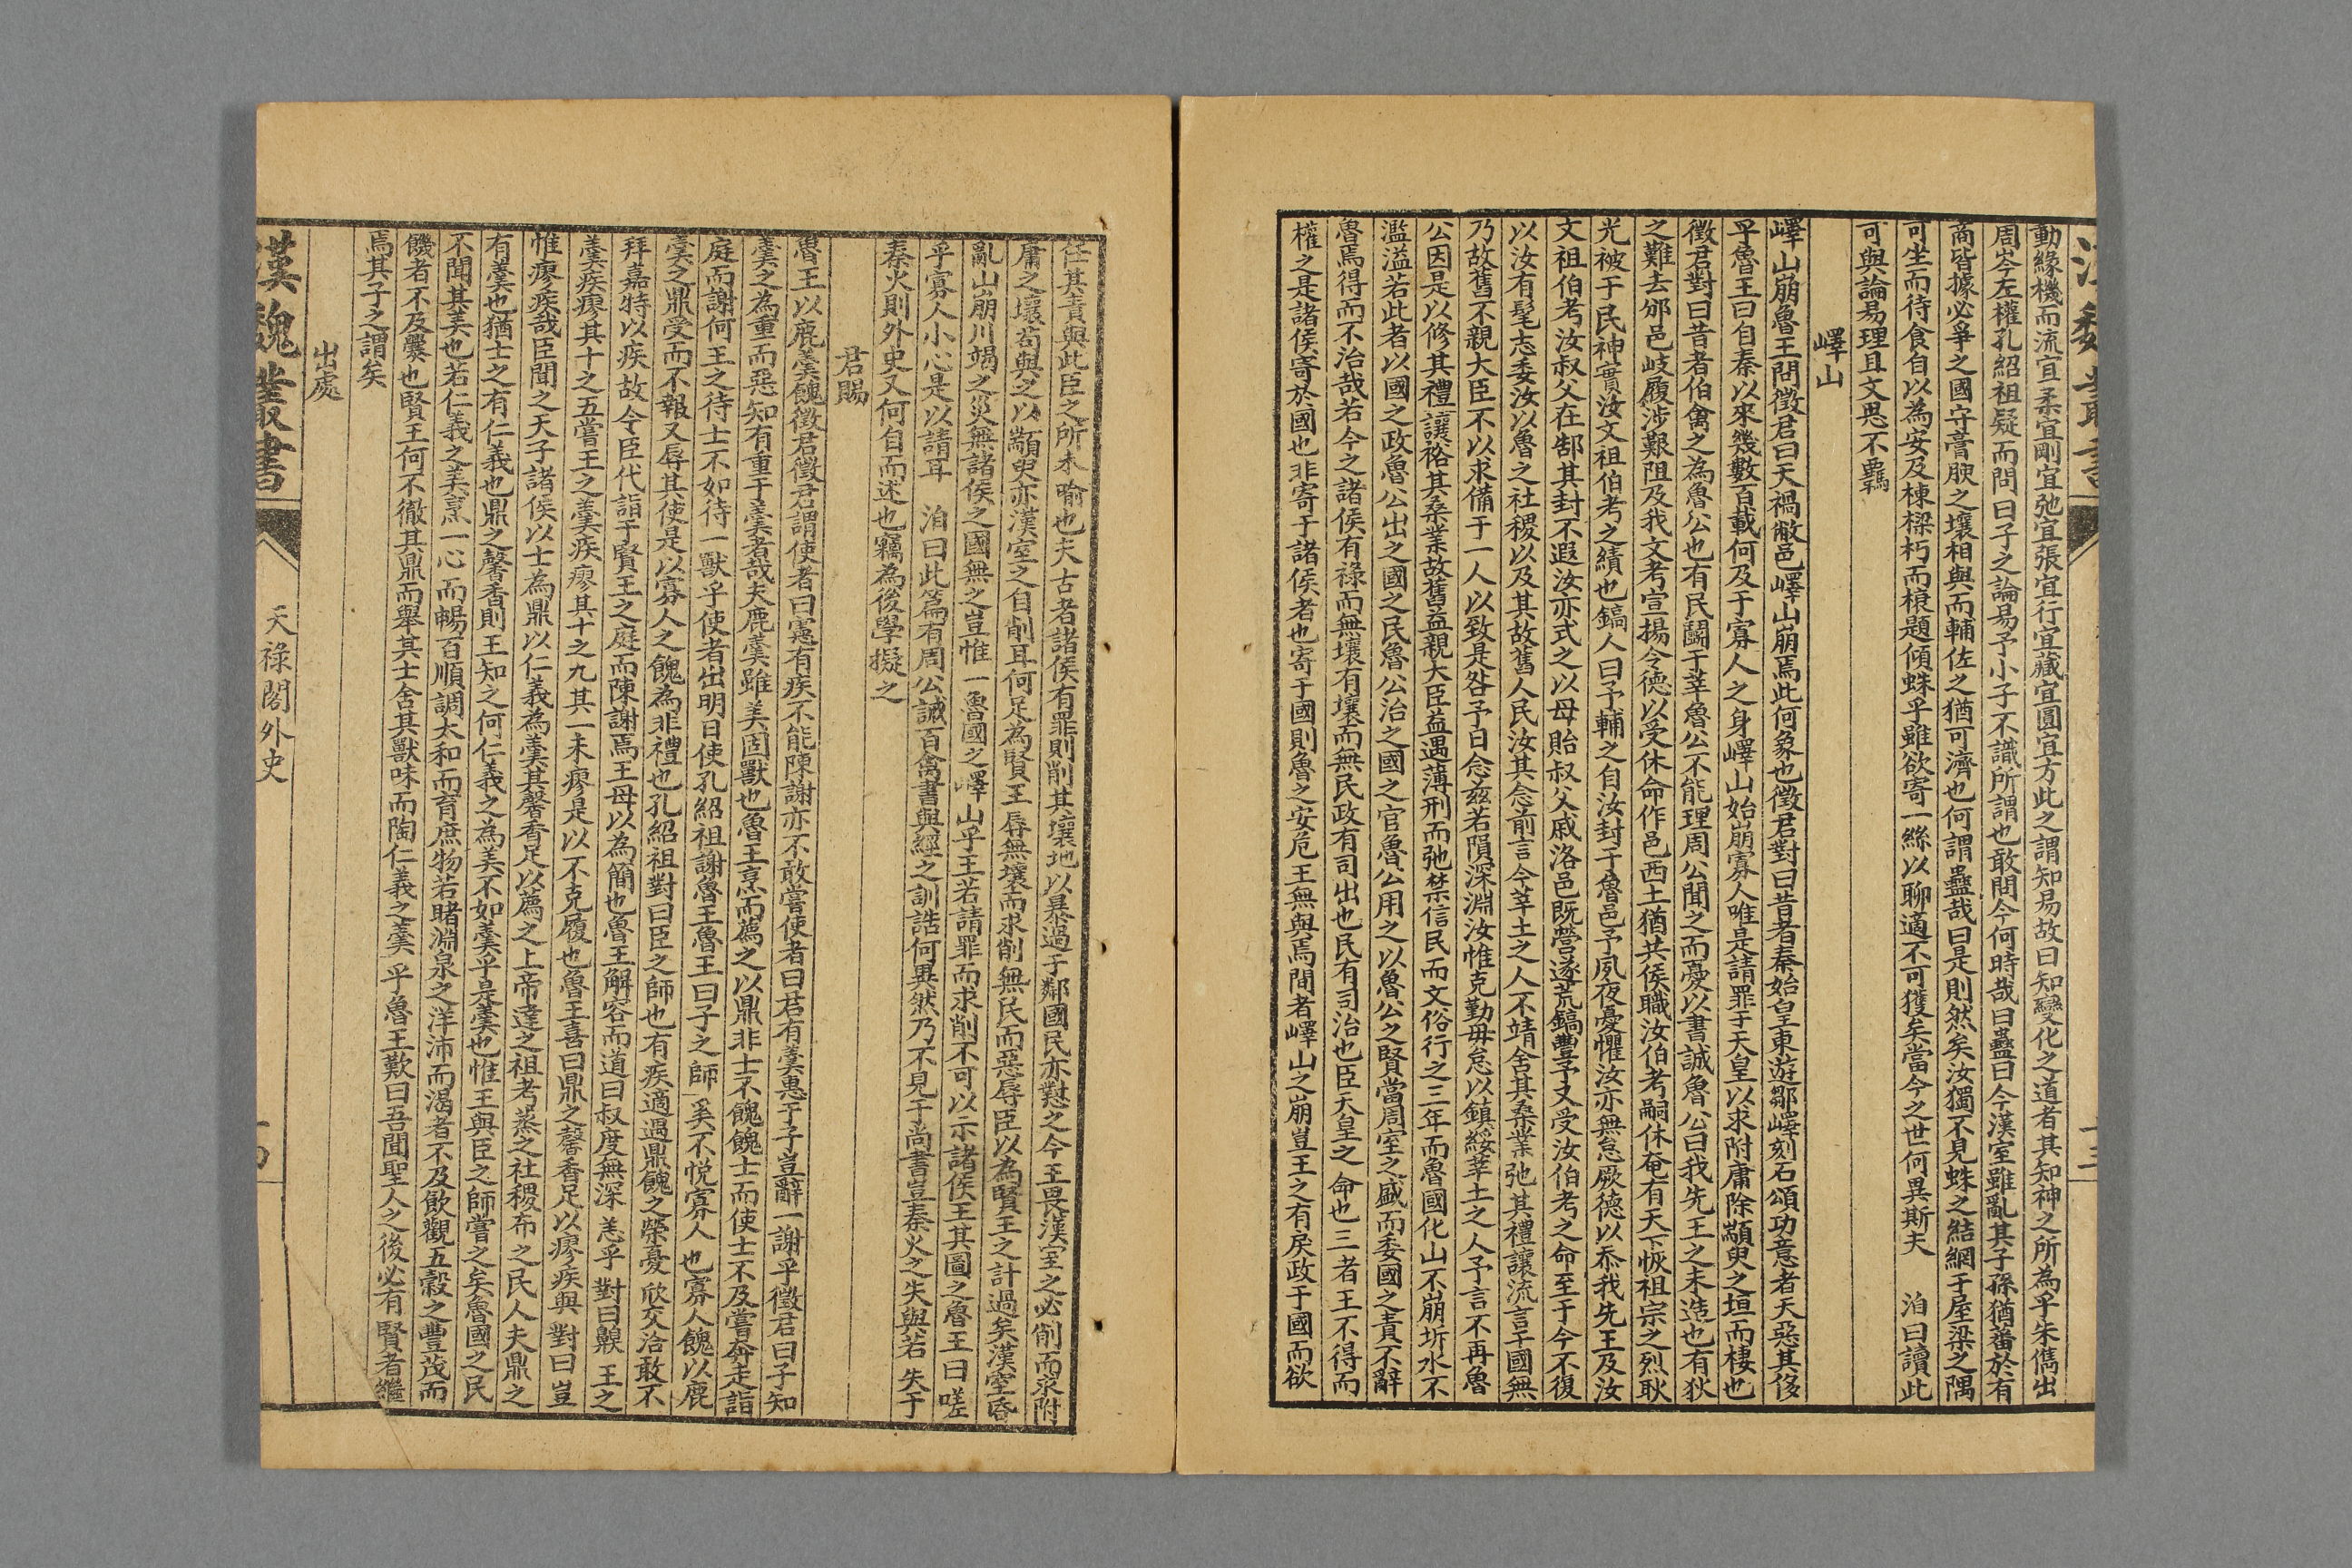 動緣機而流宜柔宜剛宜弛宜張宜行宜藏宜圓宜方此之謂知易故曰知變化之道者其知神之所為乎朱儁出
周岑左權孔紹祖疑而問曰子之論易予小子不識所謂也敢問今何時哉曰蠱曰今漢室雖亂其子孫猶蕃於有
商皆據必爭之國守膏腴之壤相與而輔佐之猶可濟也何謂蠱哉曰是則然矣汝獨不見蛛之結網于屋梁之隅
可坐而待食自以為安及棟樑朽而榱題傾蛛乎雖欲寄一絲以聊適不可獲矣當今之世何異斯夫 洎曰讀此
可與論易理且文思不羈
嶧山
嶧山崩魯王問徵君曰天禍敝邑嶧山崩焉此何象也徵君對曰昔者秦始皇東遊鄒嶧刻石頌功意者天惡其侈
乎魯王曰自秦以來幾數百載何及于寡人之身嶧山始崩寡人唯是請罪于天皇以求附庸除顓臾之垣而棲也
徵君對曰昔者伯禽之為魯公也有民鬬于莘魯公不能理周公聞之而憂以書誡魯公曰我先王之未造也有狄
之難去邠邑岐履涉艱阻及我文考宣揚令德以受休命作邑西土猶共侯職汝伯考嗣休奄有天下恢祖宗之烈耿
光被于民神實汝文祖伯考之績也鎬人曰予輔之自汝封于魯邑予夙夜憂懼汝亦無怠厥德以忝我先王及汝
文祖伯考汝叔父在郜其封不遐汝亦式之以母貽叔父戚洛邑既營逐荒鎬豐予又受汝伯考之命至于今不復
以汝有髦志委汝以魯之社稷以及其故舊人民汝其念前言今莘土之人不靖舍其桑業弛其禮讓流言于國無
乃故舊不親大臣不以求備于一人以致是咎予日念茲若隕深淵汝惟克勤毋怠以鎮綏莘土之人予言不再魯
公因是以修其禮讓裕其桑業故舊益親大臣益遇薄刑而弛禁信民而文俗行之三年而魯國化山不崩坼水不
濫溢若此者以國之政魯公出之國之民魯公治之國之官魯公用之以魯公之賢當周室之盛而委國之責不辭
魯焉得而不治哉若今之諸侯有祿而無壤有壤而無民政有司出也民有司治也臣天皇之命也三者王不得而
權之是諸侯寄於國也非寄于諸侯者也寄于國則魯之安危王無與焉間者嶧山之崩豈王之有戾政于國而欲
任其責與此臣之所未喻也夫古者諸侯有罪則削其壤地以暴過于鄰國民亦懟之今王畏漢室之必削而求附
庸之壤苟與之以顓臾亦漢室之自削耳何足為賢王辱無壤而求削無民而惡辱臣以為賢王之計過矣漢室昏
亂山崩川竭之災無諸侯之國無之豈惟一魯國之嶧山乎王若請罪而求削不可以示諸侯王其圖之魯王曰嗟
乎寡人小心是以請耳 洎曰此篇有周公誡百禽書與經之訓誥何異然乃不見于尚書豈秦火之失與若失于
秦火則外史又何自而述也竊為後學擬之
君賜
魯王以鹿羹餽徵君徵君謂使者曰憲有疾不能陳謝亦不敢嘗使者曰君有羹惠于子豈辭一謝乎徵君曰子知
羹之為重而惡知有重于羹者哉夫鹿羹雖美固獸也魯王烹而薦之以鼎非士不餽餽士而使士不及嘗奔走詣
庭而謝何王之待士不如待一獸乎使者出明日使孔紹祖謝魯王魯王曰子之師奚不悅寡人也寡人餽以鹿
羹之鼎受而不報又辱其使是以寡人之餽為非禮也孔紹祖對曰臣之師也有疾適遇鼎餽之榮憂欣交洽敢不
拜嘉特以疾故令臣代詣于賢王之庭而陳謝焉王母以為簡也魯王解容而道曰叔度無深恙乎對曰繄王之
羹疾瘳其十之五嘗王之羹疾瘳其十之九其一未瘳是以不克履也魯王喜曰鼎之馨香足以瘳疾與對曰豈
惟瘳疾哉臣聞之天子諸侯以士為鼎以仁義為羹其馨香足以薦之上帝達之祖考蒸之社稷布之民人夫鼎之
有羹也猶士之有仁義也鼎之馨香則王知之何仁義之為美不如羹乎是羹也惟王與臣之師嘗之矣魯國之民
不聞其美也若仁義之羹烹一心而暢百順調太和而育庶物若睹淵泉之洋沛而渴者不及飲觀五穀之豐茂而
饑者不及爨也賢王何不徹其鼎而舉其士舍其獸味而陶仁義之羹乎魯王歎曰吾聞聖人之後必有賢者繼
焉其子之謂矣
出處
漢魏叢書
天祿閣外史